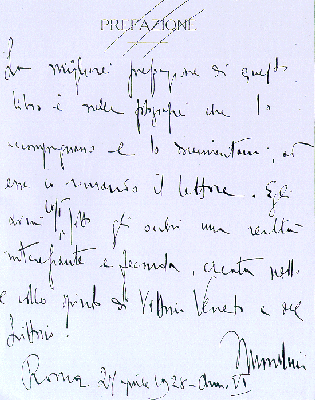 PREFAZIONE
La migliore prefazione di questo
libro è nelle fotografie che lo
accompagnano e lo documentano; ad
esse io rimando il lettore. Egli
avrà così sotto gli occhi una realtà
interessante e feconda, creata nello
e collo spirito di Vittorio Veneto e del
Littorio.
Mussolini
Roma 27 aprile 1928 - Anno VI